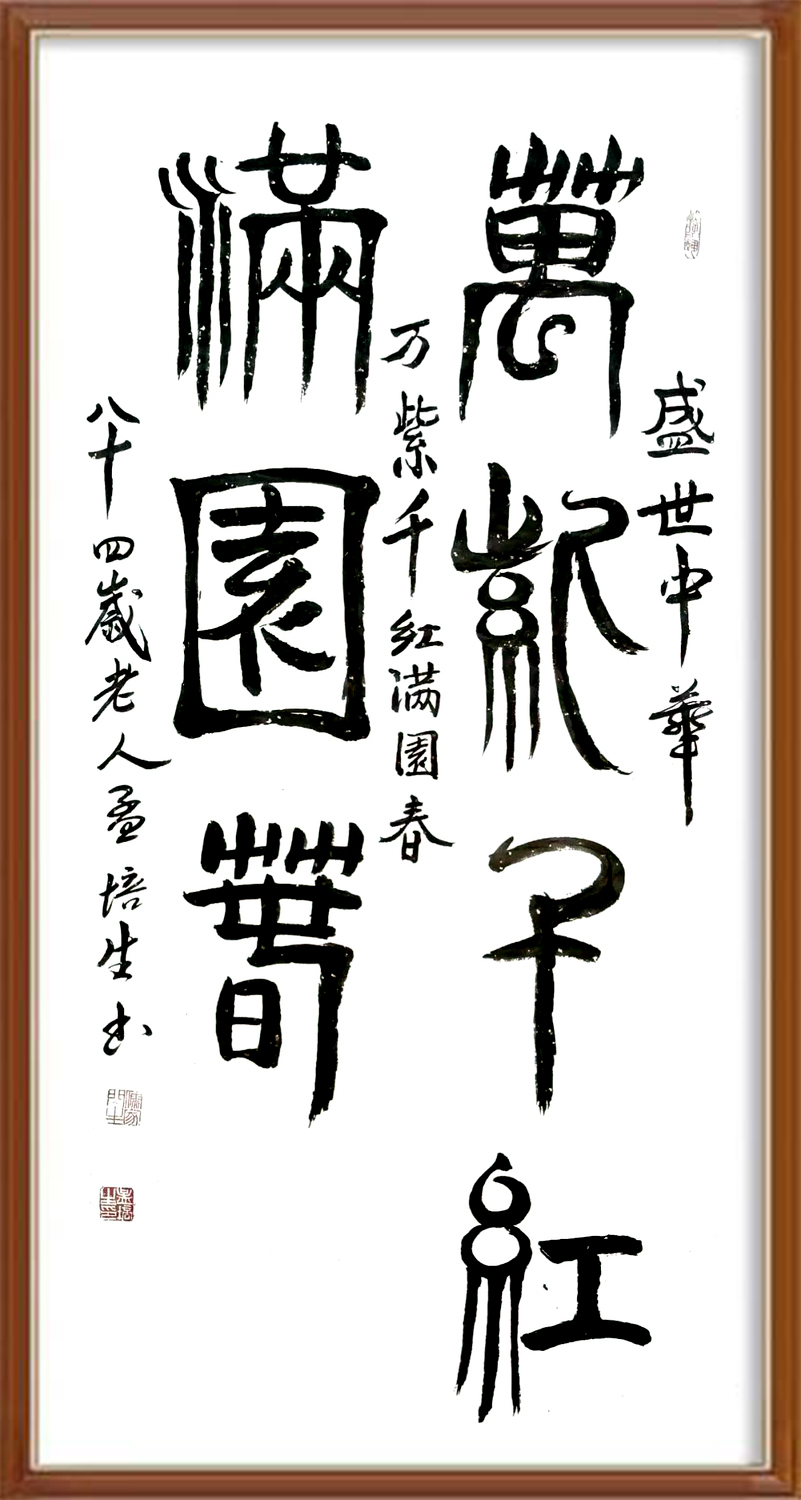 盛世中華
萬紫千紅
万紫千红满園春
滿園春
八十四歲老人孟培生书